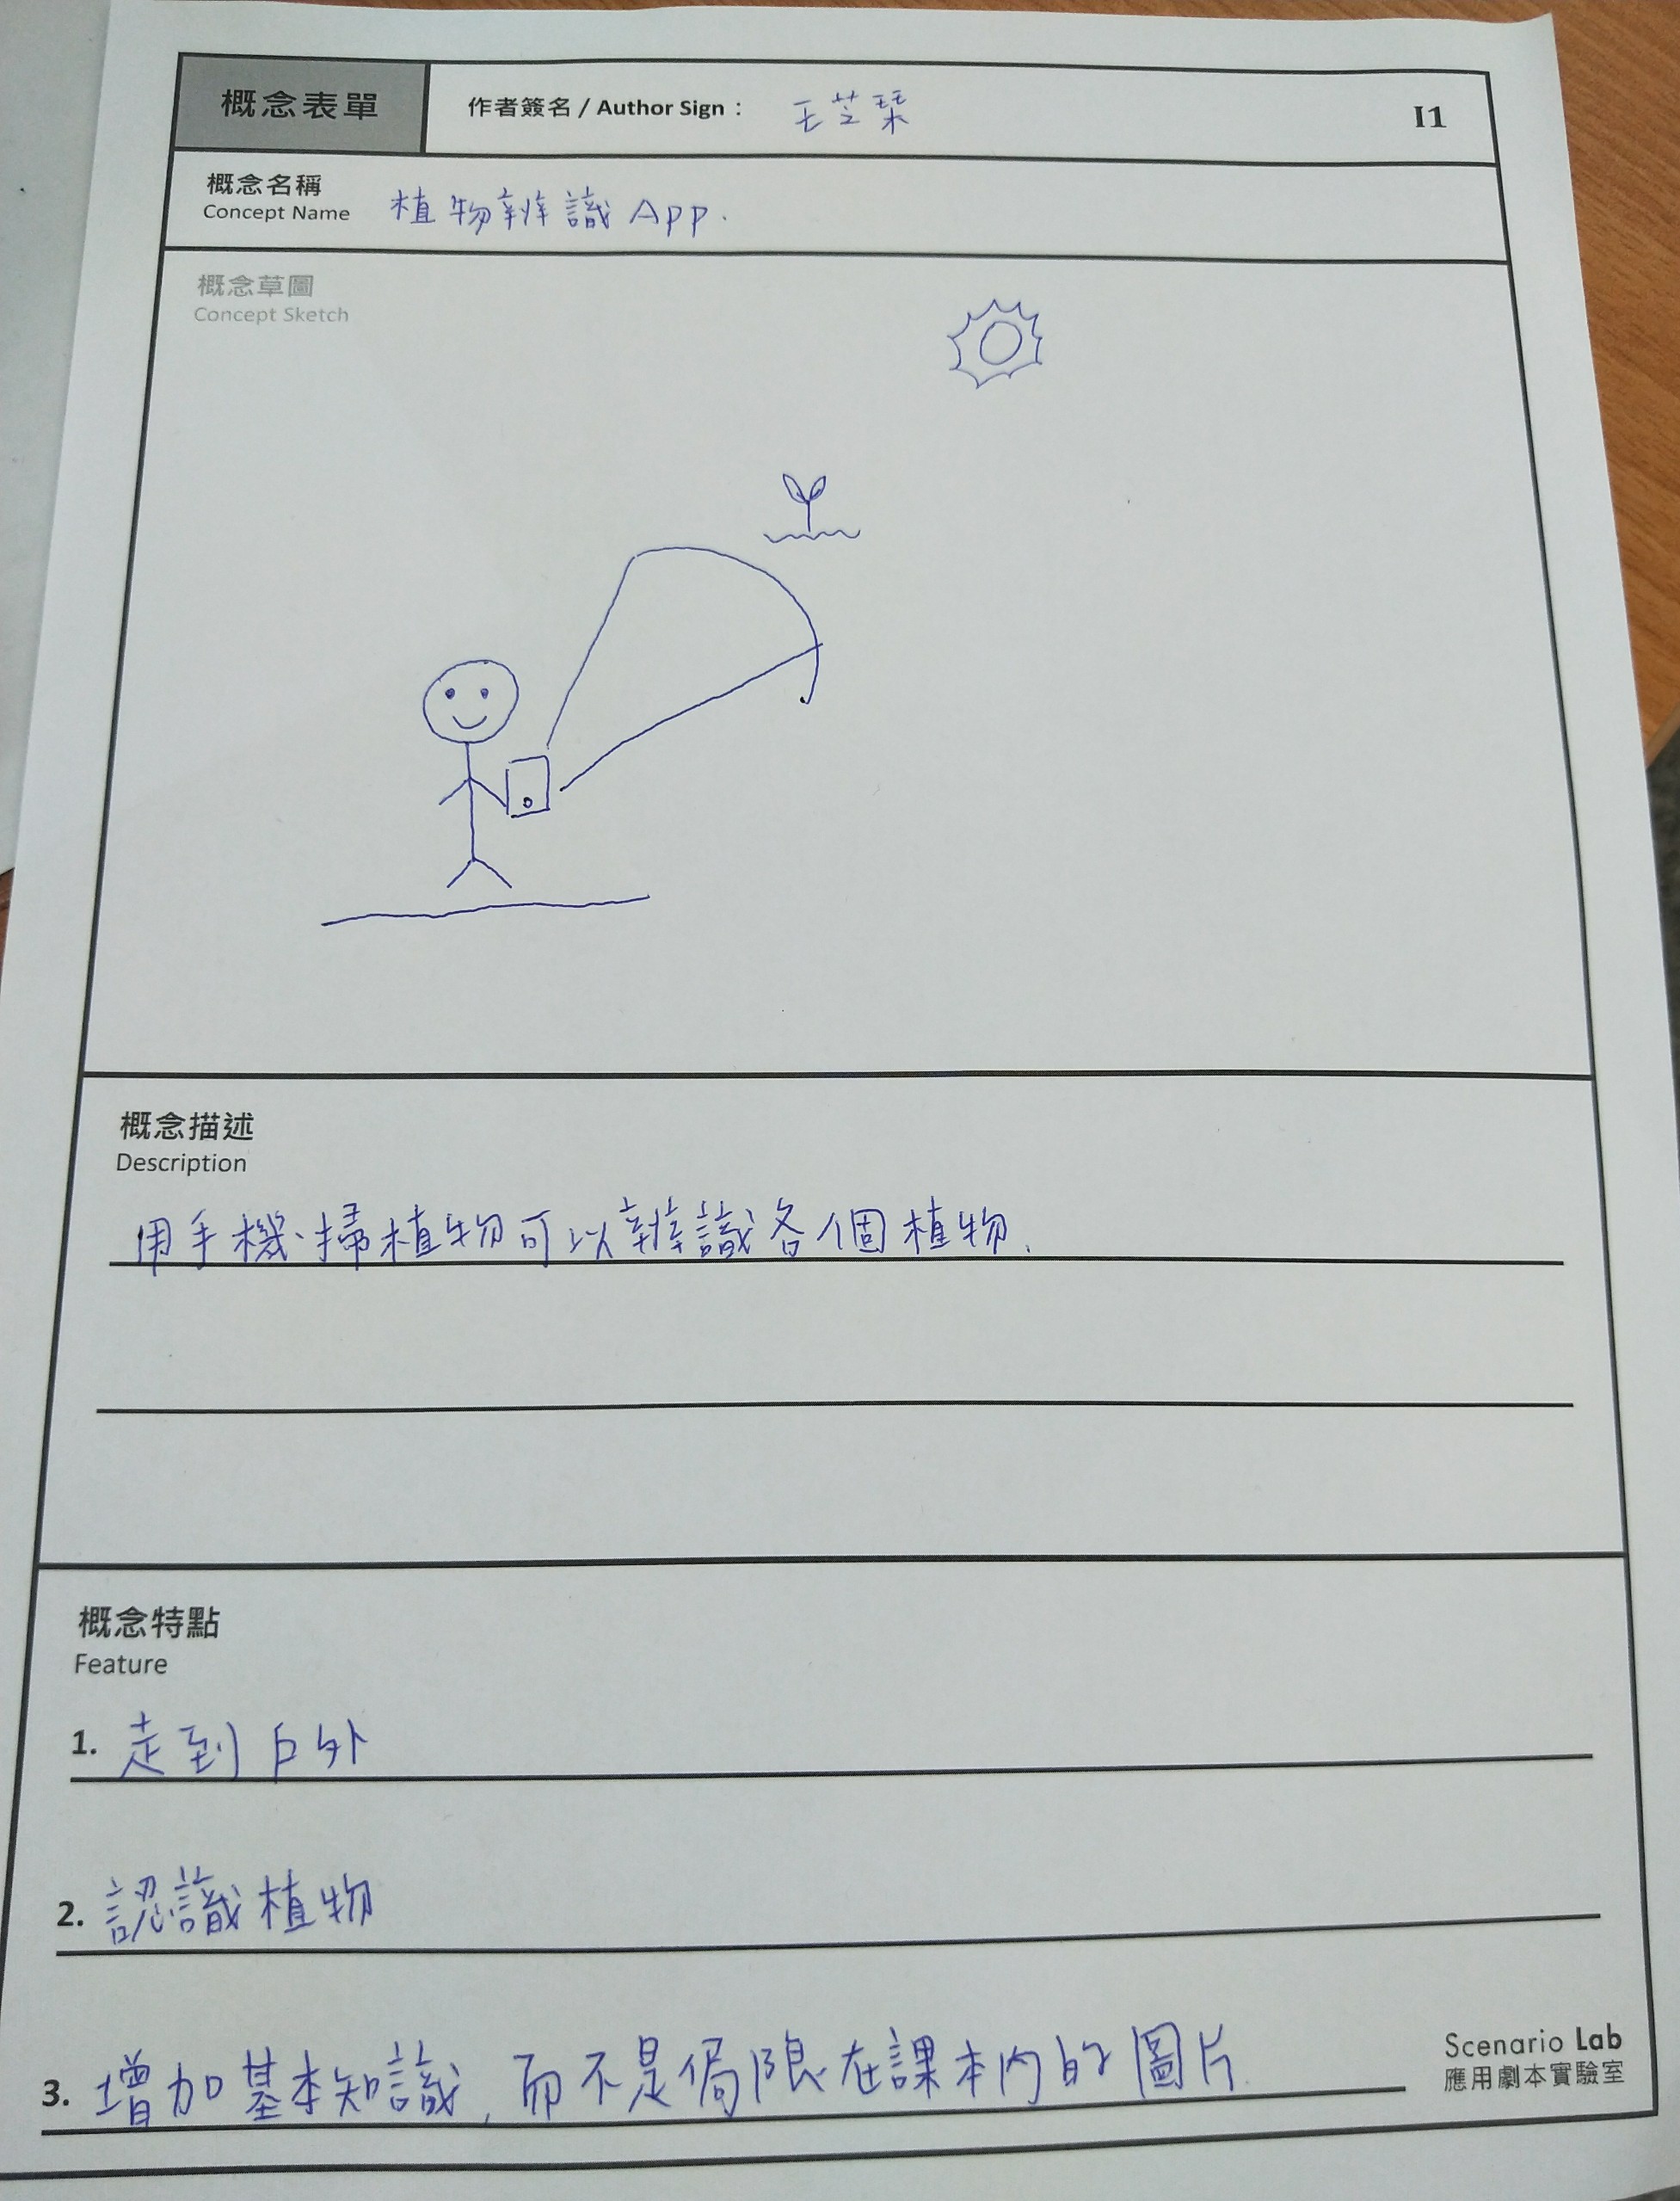 概念表單
作者簽名 / Author Sign : 王芝琹
I1
概念名稱
Concept Name
植物辨識 App.
概念草圖
Concept Sketch
概念描述
Description
用手機掃植物可以辨識各個植物.
概念特點
Feature
1. 走到戶外
2. 認識植物
3. 增加基本知識, 而不是侷限在課本內的圖片.
Scenario Lab
應用劇本實驗室